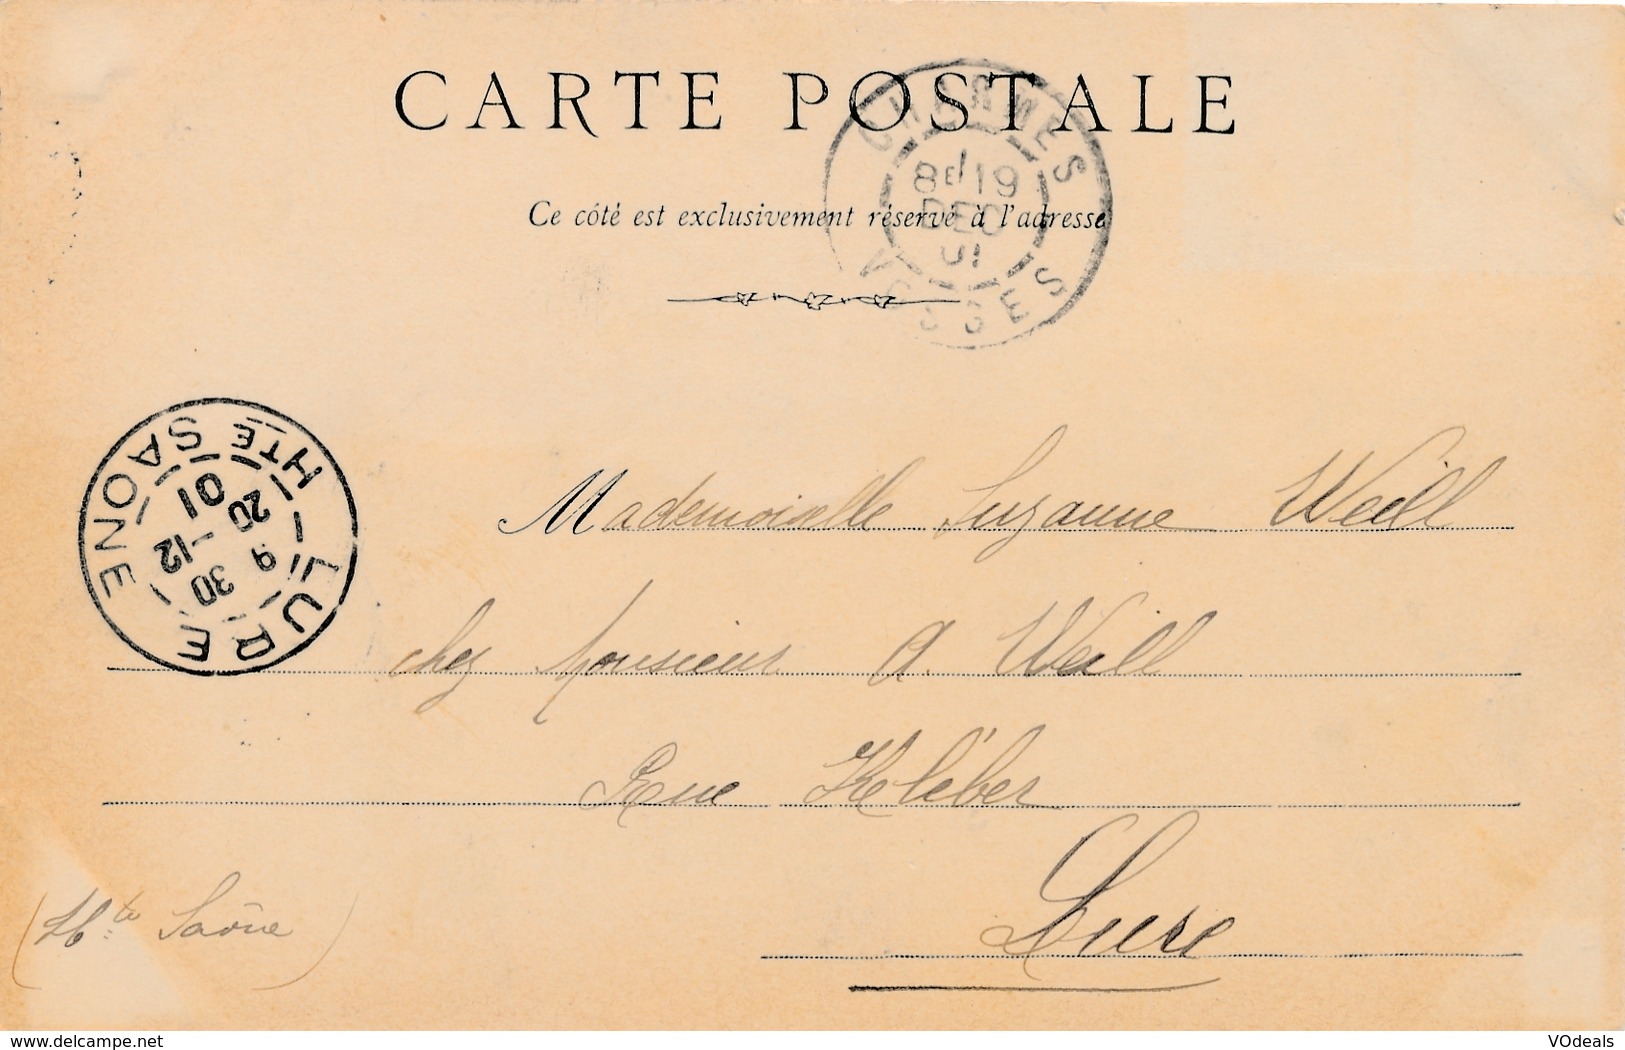 CARTE POSTALE
CHARMES
8E 19
DEC
01
VOSGES
Ce côté est exclusivement réservé à l'adresse
LURE
9 30
20 -12
01
HTE SAONE
Mademoiselle Suzanne Weill
chez Monsieur A. Weill
Rue Kléber
Lure
(Hte Saône)
www.delcampe.net
VOdeals